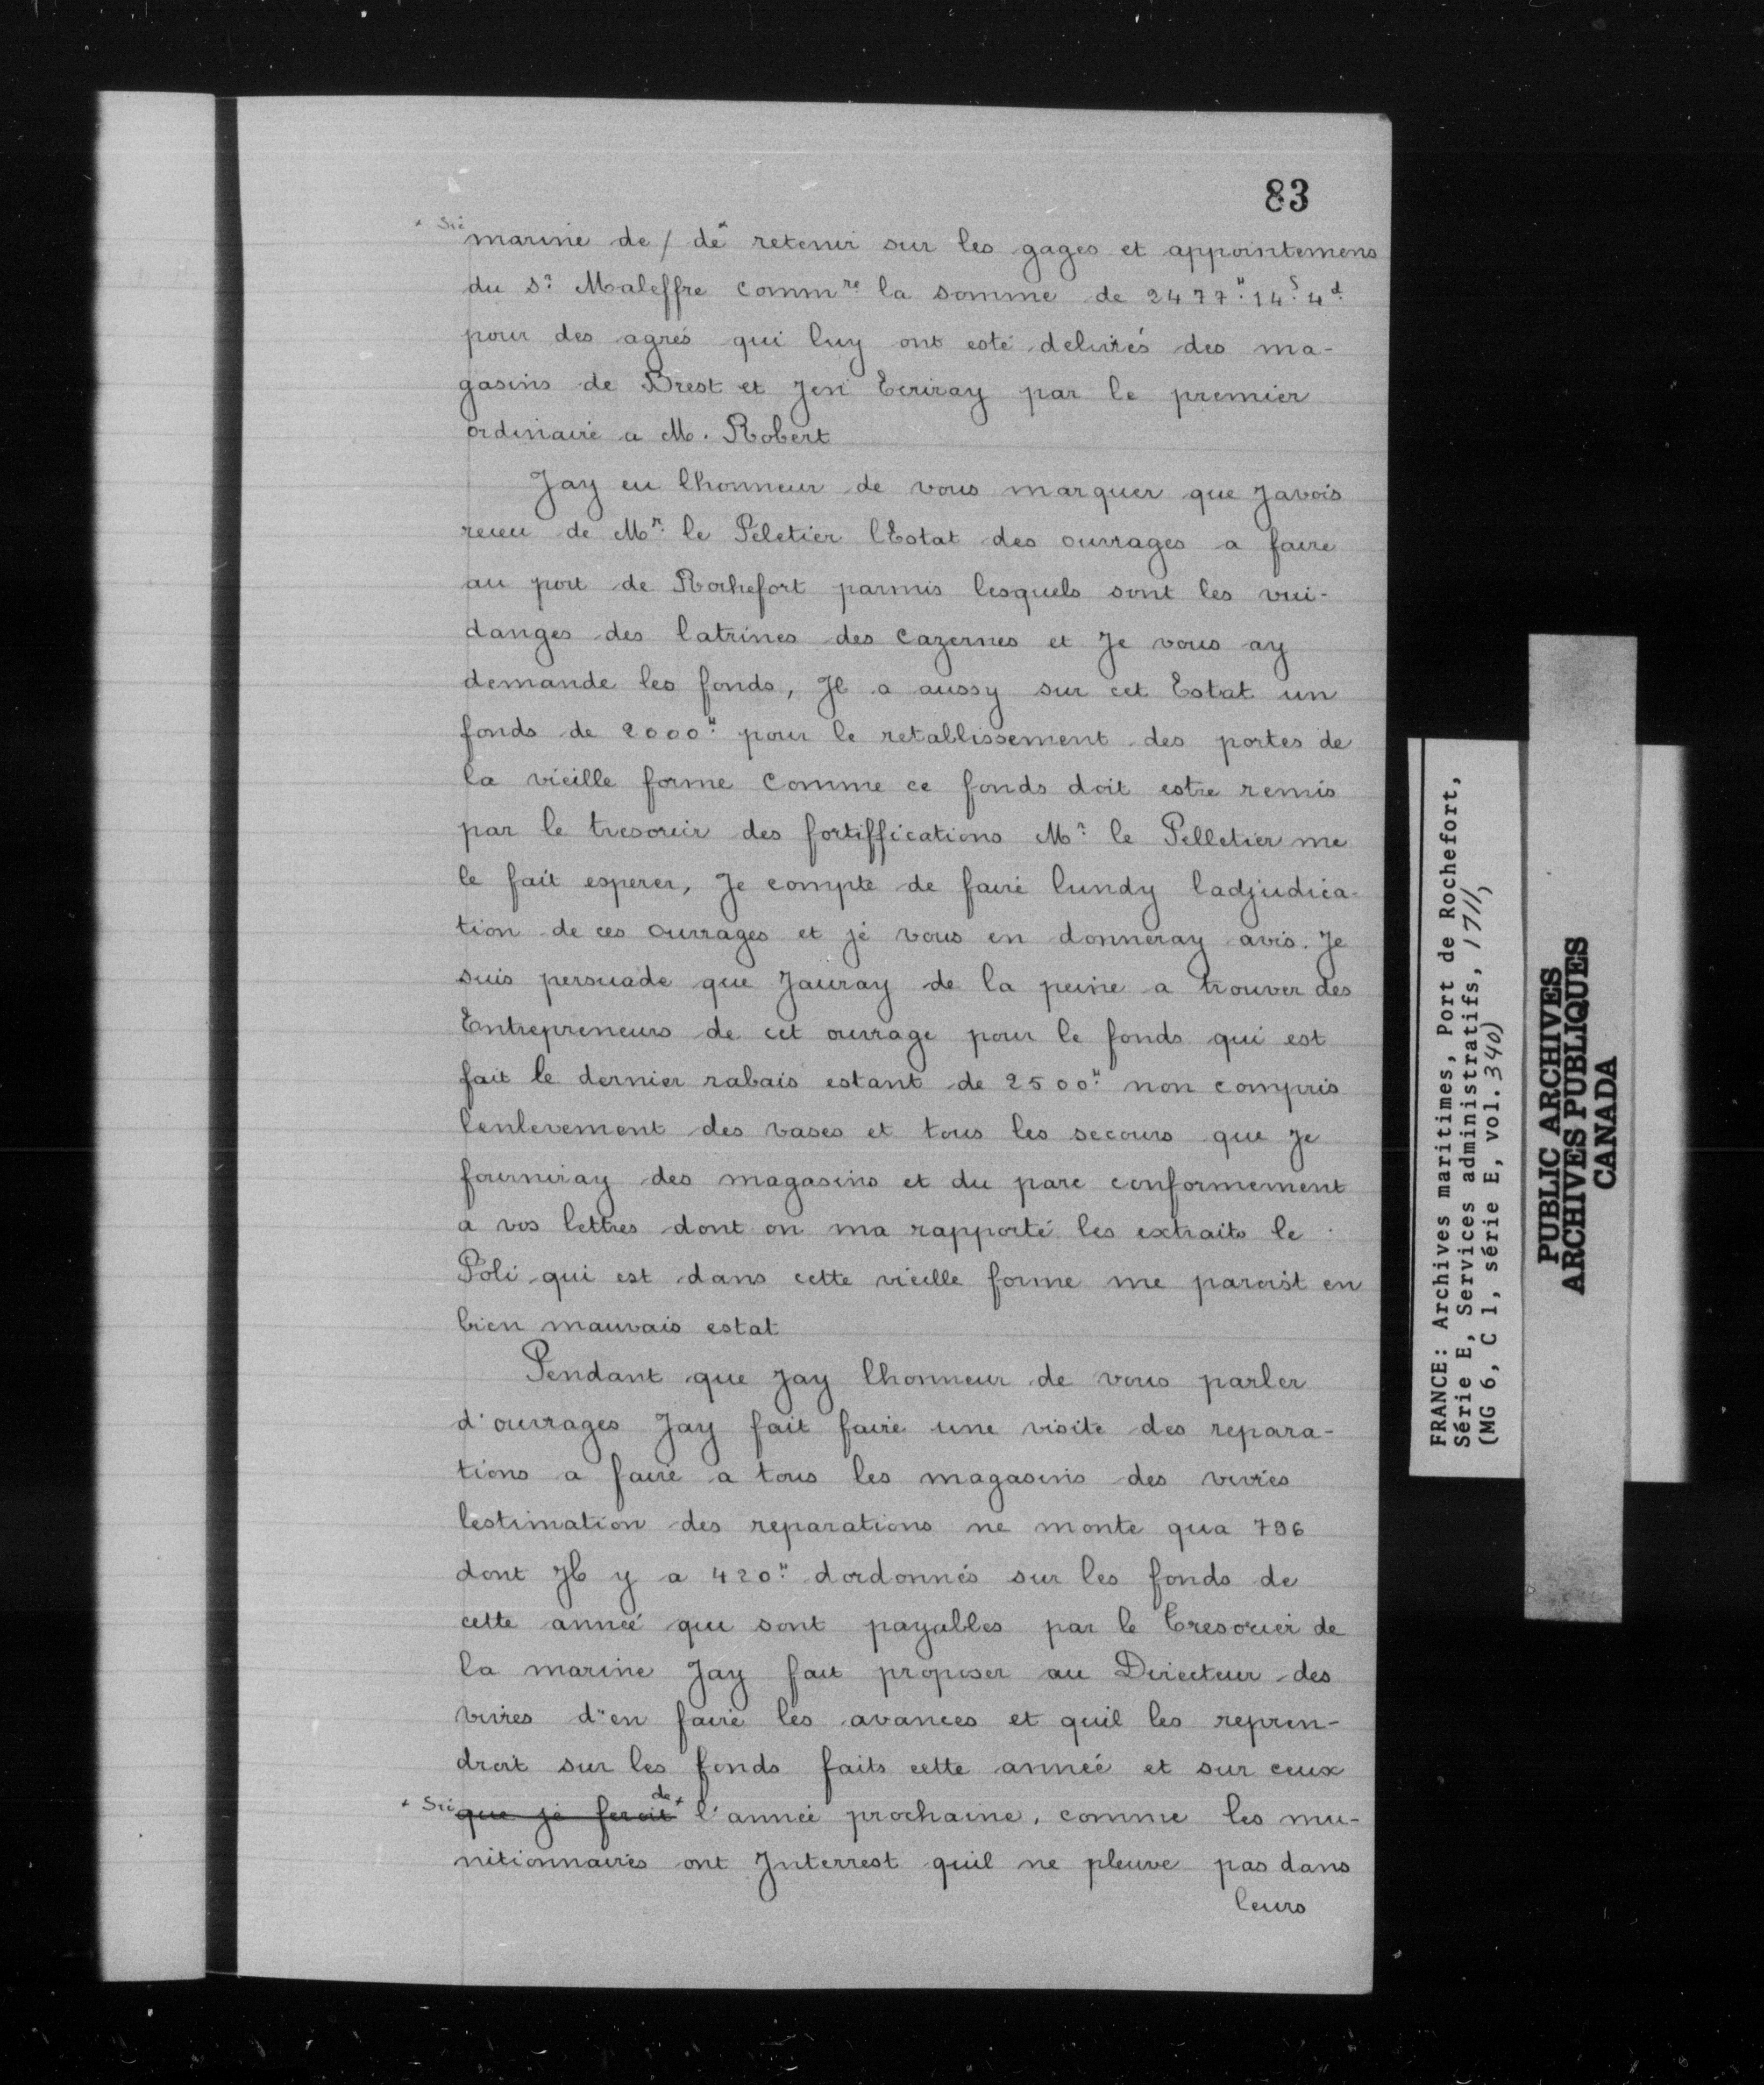 83
* Sic marine de / de* retenir sur les gages et appointemens
du Sr Maleffre Commre la somme de 2477" 14s 4d
pour des agrés qui luy ont esté delivrés des ma-
gasins de Brest et Jen Ecriray par le premier
ordinaire a M. Robert
Jay eu lhonneur de vous marquer que Javois
receu de Mr le Peletier lEstat des ouvrages a faire
au port de Rochefort parmis lesquels sont les vui-
danges des latrines des Cazernes et Je vous ay
demande les fonds, Jl a aussy sur cet Estat un
fonds de 2000" pour le retablissement des portes de
la vieille forme Comme ce fonds doit estre remis
par le tresorier des fortiffications Mr le Pelletier me
le fait esperer, Je compte de faire lundy ladjudica-
tion de ces ouvrages et je vous en donneray avis. Je
suis persuade que Jauray de la peine a trouver des
Entrepreneurs de cet ouvrage pour le fonds qui est
fait le dernier rabais estant de 2500" non compris
lenlevement des vases et tous les secours que Je
fourniray des magasins et du parc conformement
a vos lettres dont on ma rapporté les extraits le
Poli qui est dans cette vieille forme me paroist en
bien mauvais estat
Pendant que Jay lhonneur de vous parler
d'ouvrages Jay fait faire une visite des repara-
tions a faire a tous les magasins des vivres
lestimation des reparations ne monte qua 796
dont Jl y a 420" dordonnés sur les fonds de
cette année qui sont payables par le Tresorier de
la marine Jay fait proposer au Directeur des
vivres d'en faire les avances et quil les repren-
droit sur les fonds faits cette année et sur ceux
* Sic que je feroit de* l'année prochaine, comme les mu-
nitionnaires ont Jnterrest quil ne pleuve pas dans
leurs
FRANCE: Archives maritimes, Port de Rochefort,
Série E, Services administratifs, 1711,
(MG 6, C 1, série E, vol. 340)
PUBLIC ARCHIVES
ARCHIVES PUBLIQUES
CANADA